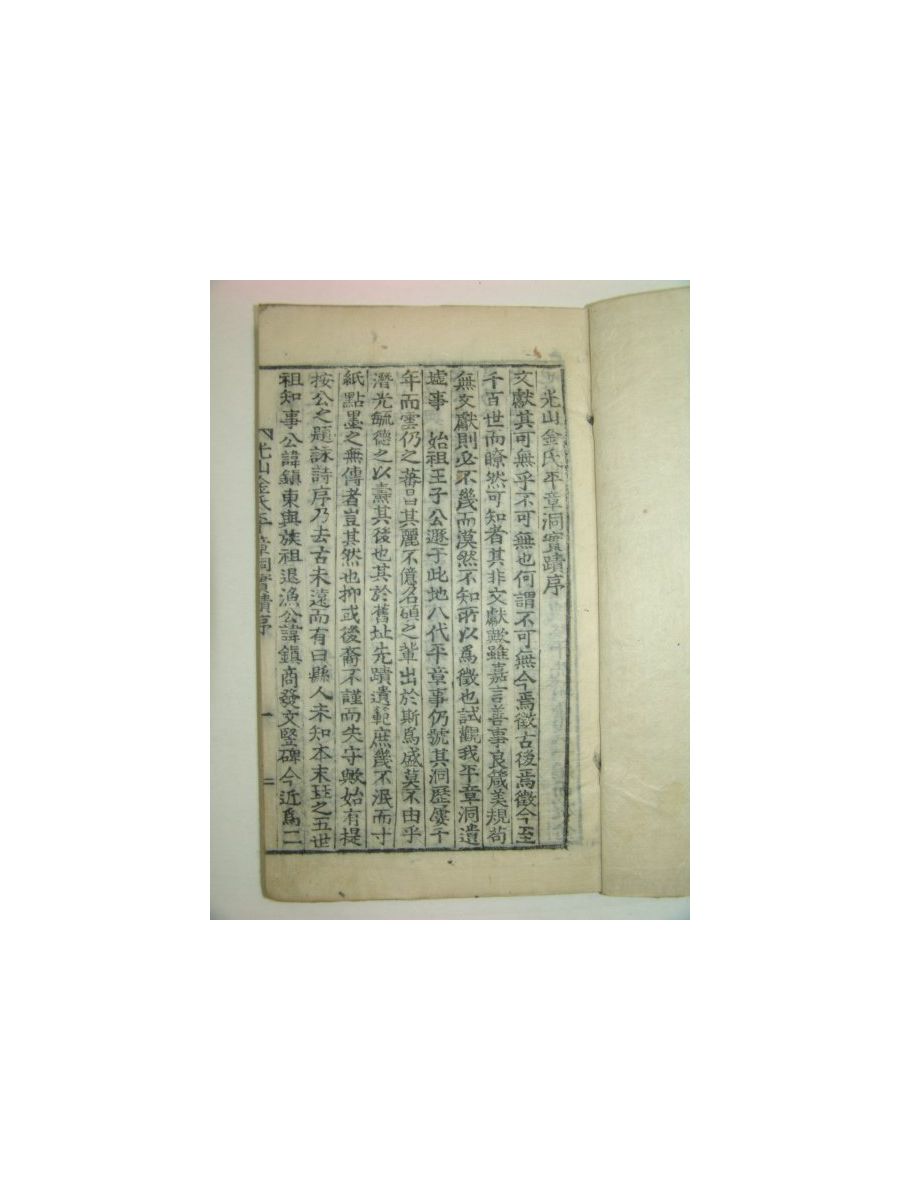 光山金氏平章洞實蹟序
文獻其可無乎不可無也何謂不可無今焉徵古後焉徵今至
千百世而瞭然可知者其非文獻歟雖嘉言善事良箴美規苟
無文獻則必不幾而漠然不知所以爲徵也試觀我平章洞遺
墟事 始祖王子公遯于此地八代平章事仍號其洞歷屢千
年而雲仍之蕃昌其麗不億名碩之輩出於斯爲盛莫不由乎
潛光毓德之以燾其後也其於舊址先蹟遺範庶幾不泯而寸
紙點墨之無傳者豈其然也抑或後裔不謹而失守歟始有提
按公之題詠詩序乃去古未遠而有曰縣人未知本末玆之五世
祖知事公諱鎭東與族祖退漁公諱鎭商發文竪碑今近爲二
光山金氏平章洞實蹟序 一 二